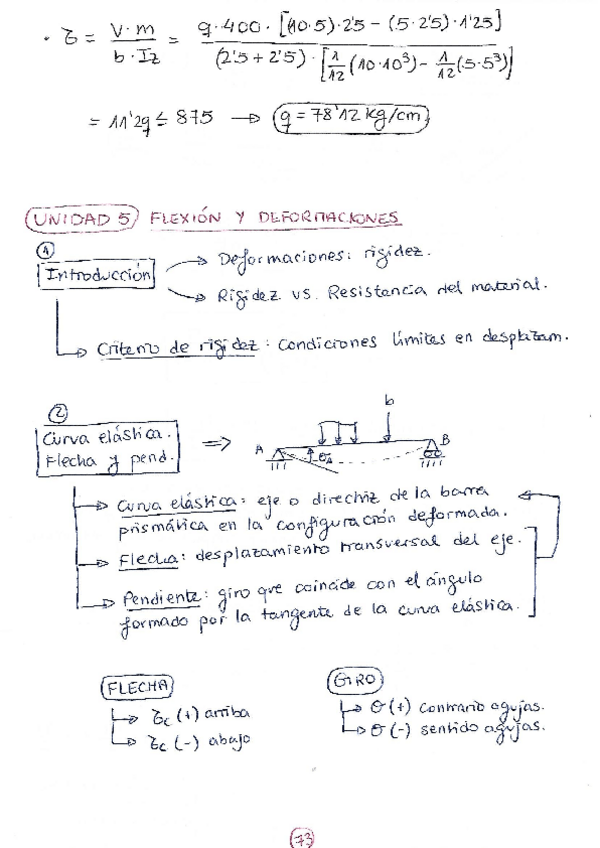 · τ = V·m / b·Iz = q·400·[(10·5)·2'5 − (5·2'5)·1'25] / (2'5+2'5)·[1/12(10·10³) − 1/12(5·5³)]
= 11'2q ≤ 875 → q = 78'12 kg/cm
UNIDAD 5) FLEXIÓN Y DEFORMACIONES
1
Introducción
→ Deformaciones: rigidez.
→ Rigidez vs. Resistencia del material.
→ Criterio de rigidez: condiciones límites en desplazam.
2
Curva elástica.
Flecha y pend.
⇒
b
A
θA
B
→ Curva elástica: eje o directriz de la barra
prismática en la configuración deformada.
→ Flecha: desplazamiento transversal del eje.
→ Pendiente: giro que coincide con el ángulo
formado por la tangente de la curva elástica.
FLECHA
→ τc (+) arriba
→ τc (−) abajo
GIRO
→ θ (+) contrario agujas.
→ θ (−) sentido agujas.
73